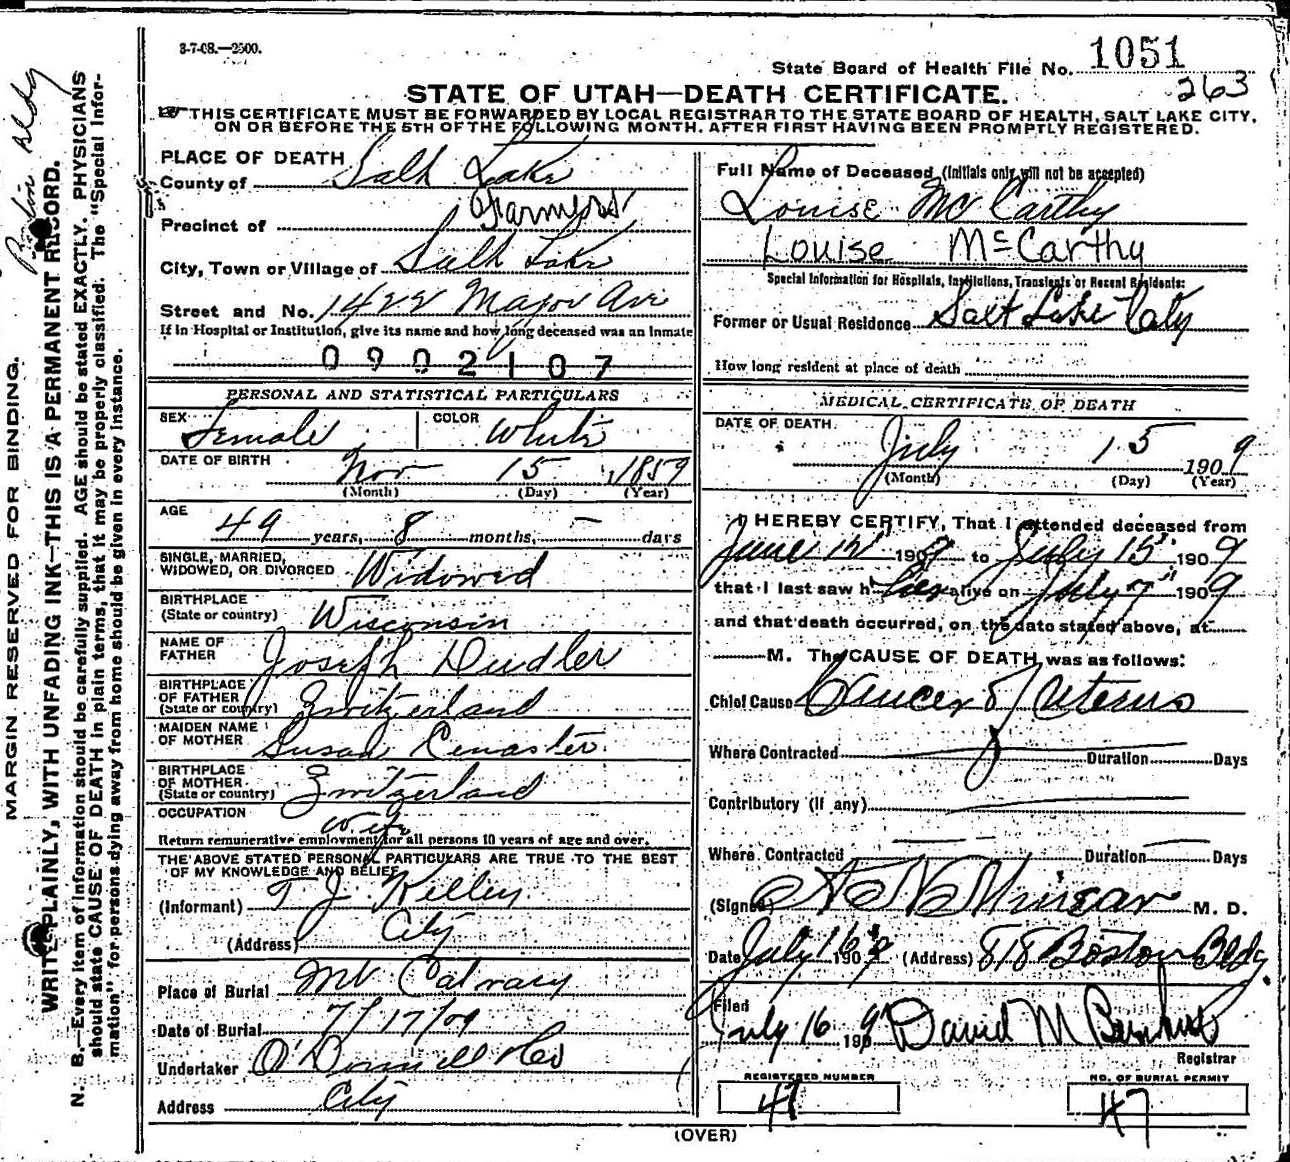 3-7-08.—2500.
State Board of Health File No. 1051
263
STATE OF UTAH—DEATH CERTIFICATE.
THIS CERTIFICATE MUST BE FORWARDED BY LOCAL REGISTRAR TO THE STATE BOARD OF HEALTH, SALT LAKE CITY,
ON OR BEFORE THE 5TH OF THE FOLLOWING MONTH, AFTER FIRST HAVING BEEN PROMPTLY REGISTERED.
PLACE OF DEATH
County of Salt Lake
Precinct of Farmers
City, Town or Village of Salt Lake
Street and No. 1422 Major Ave
If in Hospital or Institution, give its name and how long deceased was an inmate
0902107
Full Name of Deceased (Initials only will not be accepted)
Louise McCarthy
Louise McCarthy
Special Information for Hospitals, Institutions, Transients or Recent Residents:
Former or Usual Residence Salt Lake City
How long resident at place of death
PERSONAL AND STATISTICAL PARTICULARS
SEX Female COLOR White
DATE OF BIRTH Nov 15, 1859
(Month) (Day) (Year)
AGE
49 years, 8 months, — days
SINGLE, MARRIED,
WIDOWED, OR DIVORCED Widowed
BIRTHPLACE
(State or country) Wisconsin
NAME OF
FATHER Joseph Dudler
BIRTHPLACE
OF FATHER
(State or country) Zwitzerland
MAIDEN NAME
OF MOTHER Susan
BIRTHPLACE
OF MOTHER
(State or country) Zwitzerland
OCCUPATION
Wife
Return remunerative employment for all persons 10 years of age and over.
THE ABOVE STATED PERSONAL PARTICULARS ARE TRUE TO THE BEST
OF MY KNOWLEDGE AND BELIEF
(Informant) T. J. Kelley
(Address) City
Place of Burial Mt Calvary
Date of Burial 7/17/09
Undertaker O'Donnell &Co
Address City
MEDICAL CERTIFICATE OF DEATH
DATE OF DEATH
July 15 1909
(Month) (Day) (Year)
I HEREBY CERTIFY, That I attended deceased from
June 15" 1909 to July 15" 1909
that I last saw her alive on July 7" 1909
and that death occurred, on the date stated above, at
M. The CAUSE OF DEATH was as follows:
Chief Cause Cancer of Uterus
Where Contracted Duration Days
Contributory (if any)
Where Contracted Duration Days
(Signed) M. D.
Date July 16 1909 (Address) 818 Boston Bldg.
Filed
July 16 1909 David M
Registrar
REGISTERED NUMBER
47
NO. OF BURIAL PERMIT
47
(OVER)
MARGIN RESERVED FOR BINDING.
WRITE PLAINLY, WITH UNFADING INK—THIS IS A PERMANENT RECORD.
N. B.—Every item of information should be carefully supplied. AGE should be stated EXACTLY. PHYSICIANS
should state CAUSE OF DEATH in plain terms, that it may be properly classified. The "Special Infor-
mation" for persons dying away from home should be given in every instance.
Boston Bldg